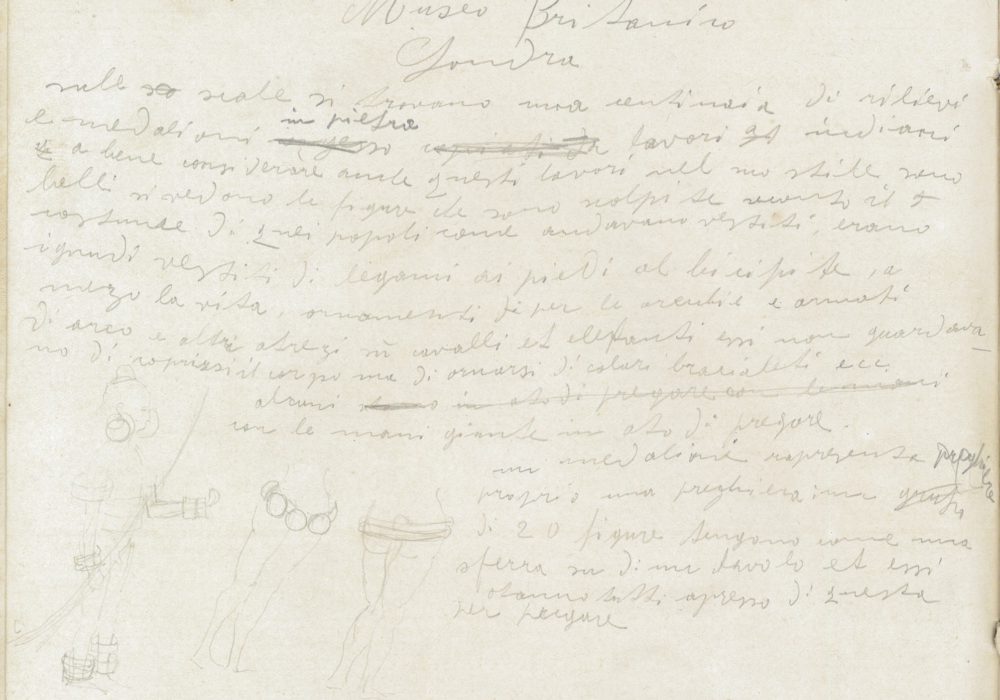 Museo Britanico
Londra
sulle scale si trovano una centinaia di rilievi
e medalioni in pietra lavori indiani
e a bene considerare anche questi lavori nel suo stille sono
belli si vedono le figure che sono scolpite seconto il
costume di quei popoli come andavano vestiti, erano
ignudi vestiti di legami ai piedi al bicipite, a
mezo la vita, ornamenti di per le orechie e armati
di arco e altri atrezi su cavalli et elefanti essi non guardava
no di coprirsi il corpo ma di ornarsi di colari bracialeti ecc.
alcuni in ato di pregare con le mani
con le mani giunte in ato di pregare.
un medalione rapresenta preghiera
proprio una preghiera
di 20 figure tengono come una
sferra su di un tavolo et essi
stanno tutti apresso di questa
per pregare